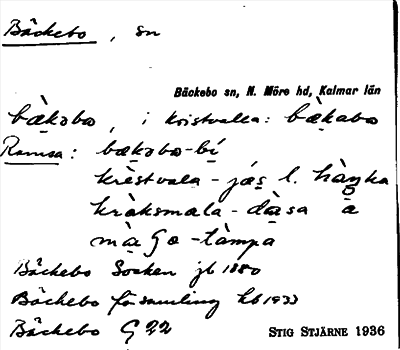 Bäckebo, sn
Bäckebo sn, N. Möre hd, Kalmar län
bæ̀kəbo, i Kristvalla: bæ̀kabo
Ramsa: bækəbo-bí
krèstvala - jæs l. hàŋka
kràksmala - dàsa å
Bäckebo Socken jb 1880
Bäckebo församling kb 1933
Bäckebo G 22
STIG STJÄRNE 1936